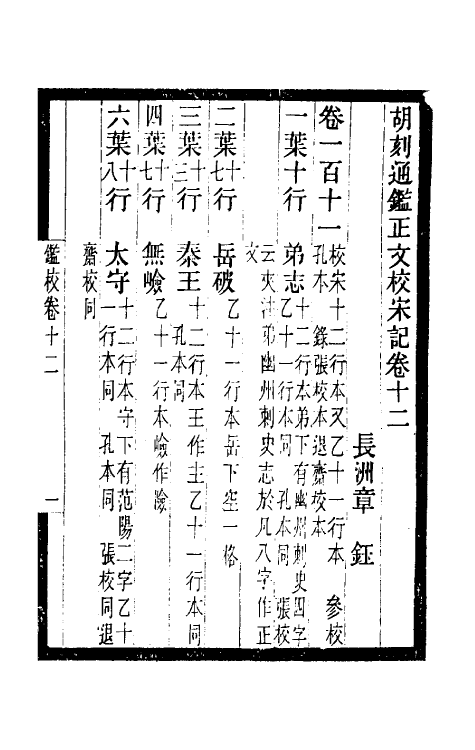 胡刻通鑑正文校宋記卷十二
長洲章　鈺
卷一百十一　校宋十二行本又乙十一行本　參校
孔本　錄張校本退齋校本
一葉十行　弟志　十二行本弟下有幽州刺史四字
乙十一行本同　孔本同　張校
云夾注弟幽州刺史志於凡八字作正
文
二葉十七行　岳破　乙十一行本岳下空一格
三葉十三行　泰王　十二行本王作主乙十一行本同
孔本同
四葉十七行　無嶮　乙十一行本嶮作險
六葉十八行　太守　十二行本守下有范陽二字乙十
一行本同　孔本同　張校同退
齋校同
鑑校卷十二　一